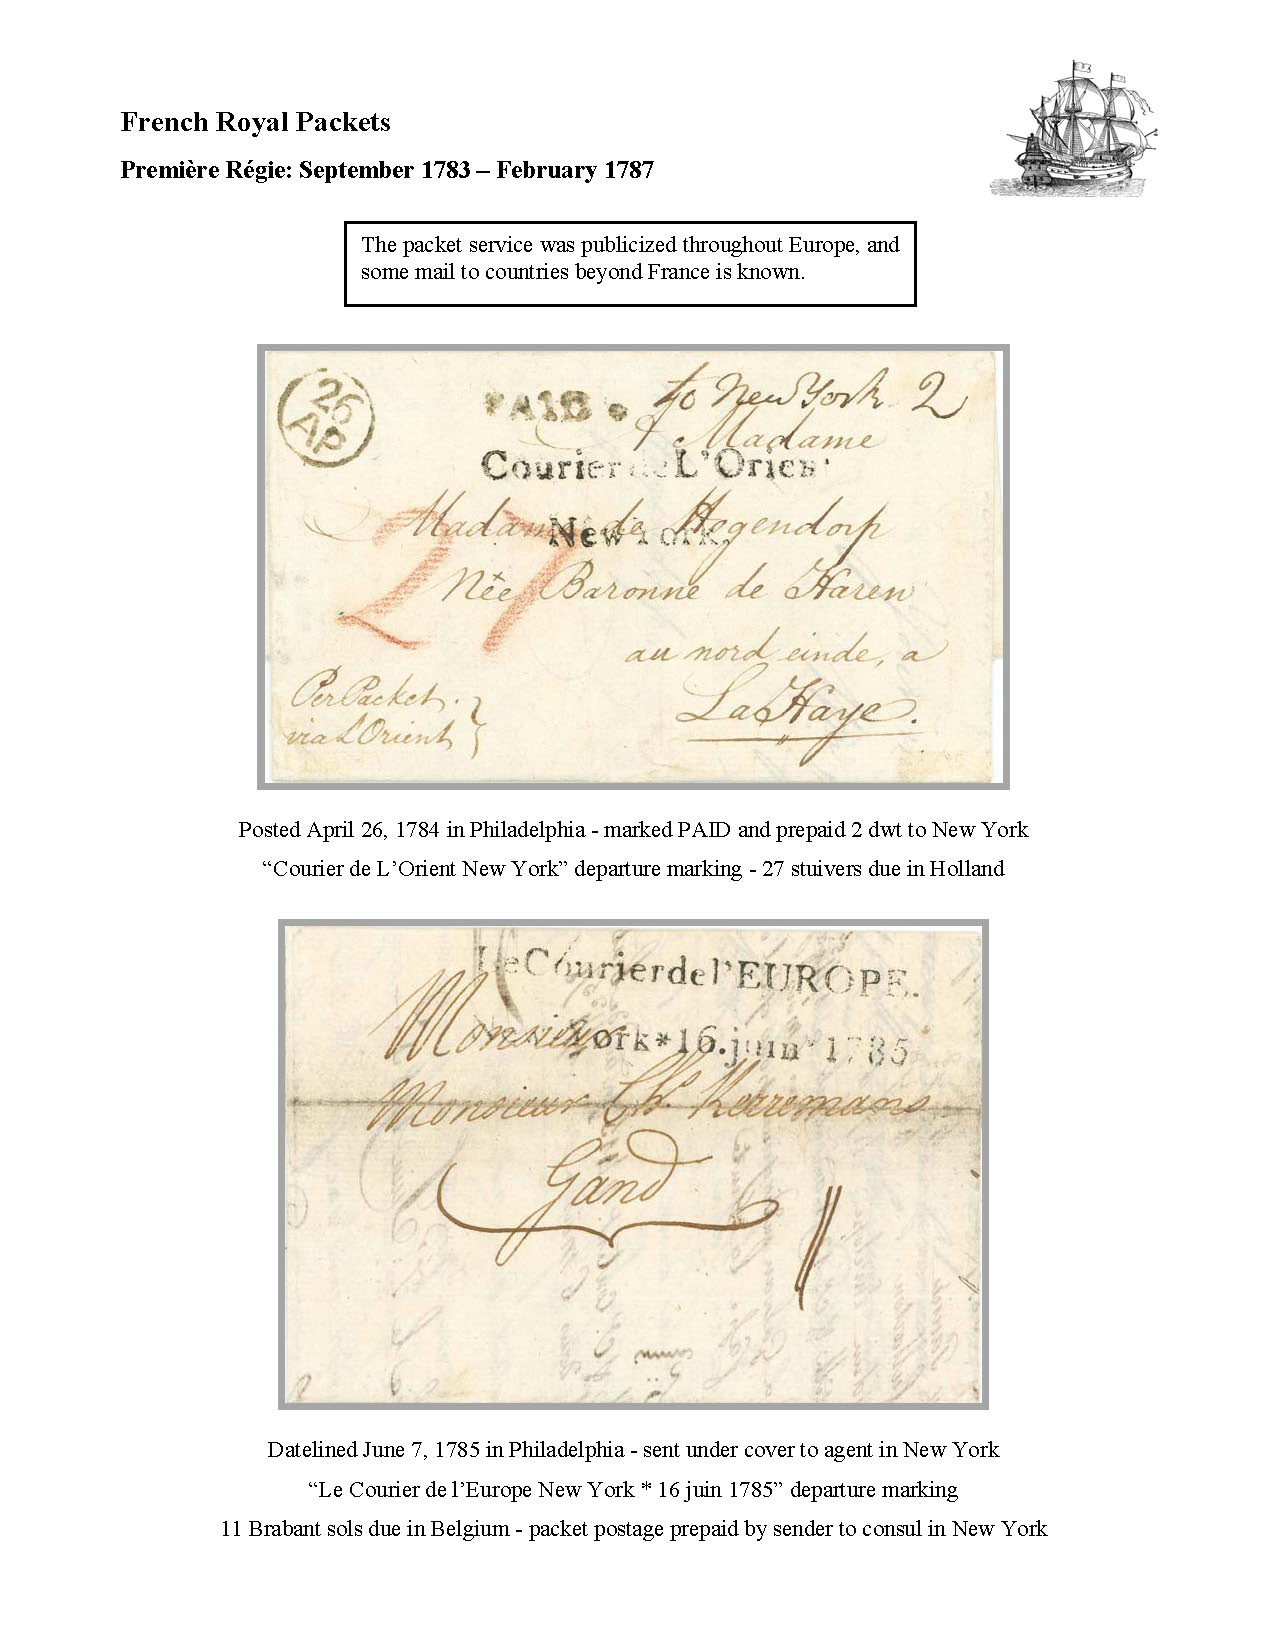 French Royal Packets
Première Régie: September 1783 – February 1787
The packet service was publicized throughout Europe, and
some mail to countries beyond France is known.
26
AP
PAID to New York 2
Madame
Courier de L'Orient
Madame de Hogendorp
New York,
27
Née Baronne de Haren
au nord einde, a
La Haye.
Per Packet.
via L'Orient
Posted April 26, 1784 in Philadelphia - marked PAID and prepaid 2 dwt to New York
“Courier de L’Orient New York” departure marking - 27 stuivers due in Holland
Le Courier de l'EUROPE.
York * 16. juin 1785
Monsieur
Monsieur Ch. Kerremans
Gand
11
Datelined June 7, 1785 in Philadelphia - sent under cover to agent in New York
“Le Courier de l’Europe New York * 16 juin 1785” departure marking
11 Brabant sols due in Belgium - packet postage prepaid by sender to consul in New York